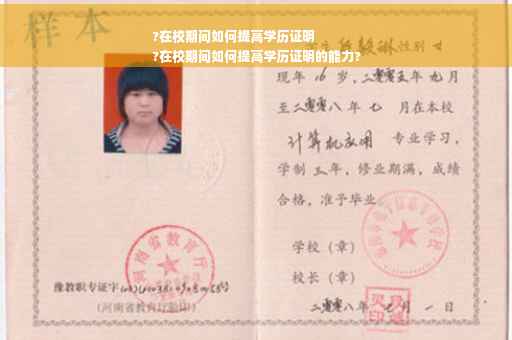 样本
?在校期间如何提高学历证明
性别 女
?在校期间如何提高学历证明的能力?
现年 16 岁，二零零五年 九月
至二零零八年 七 月在本校
计算机应用 专业学习，
学制 三 年，修业期满，成绩
合格，准予毕业
学校（章）
河南省教育厅
校长（章）
豫教职专证字
(河南省教育厅验印)
二零零八年 七 月 一 日